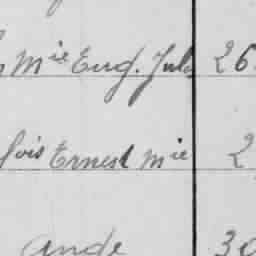 Mie Eug. Jules 26
fois Ernest Mie 2
ande 30